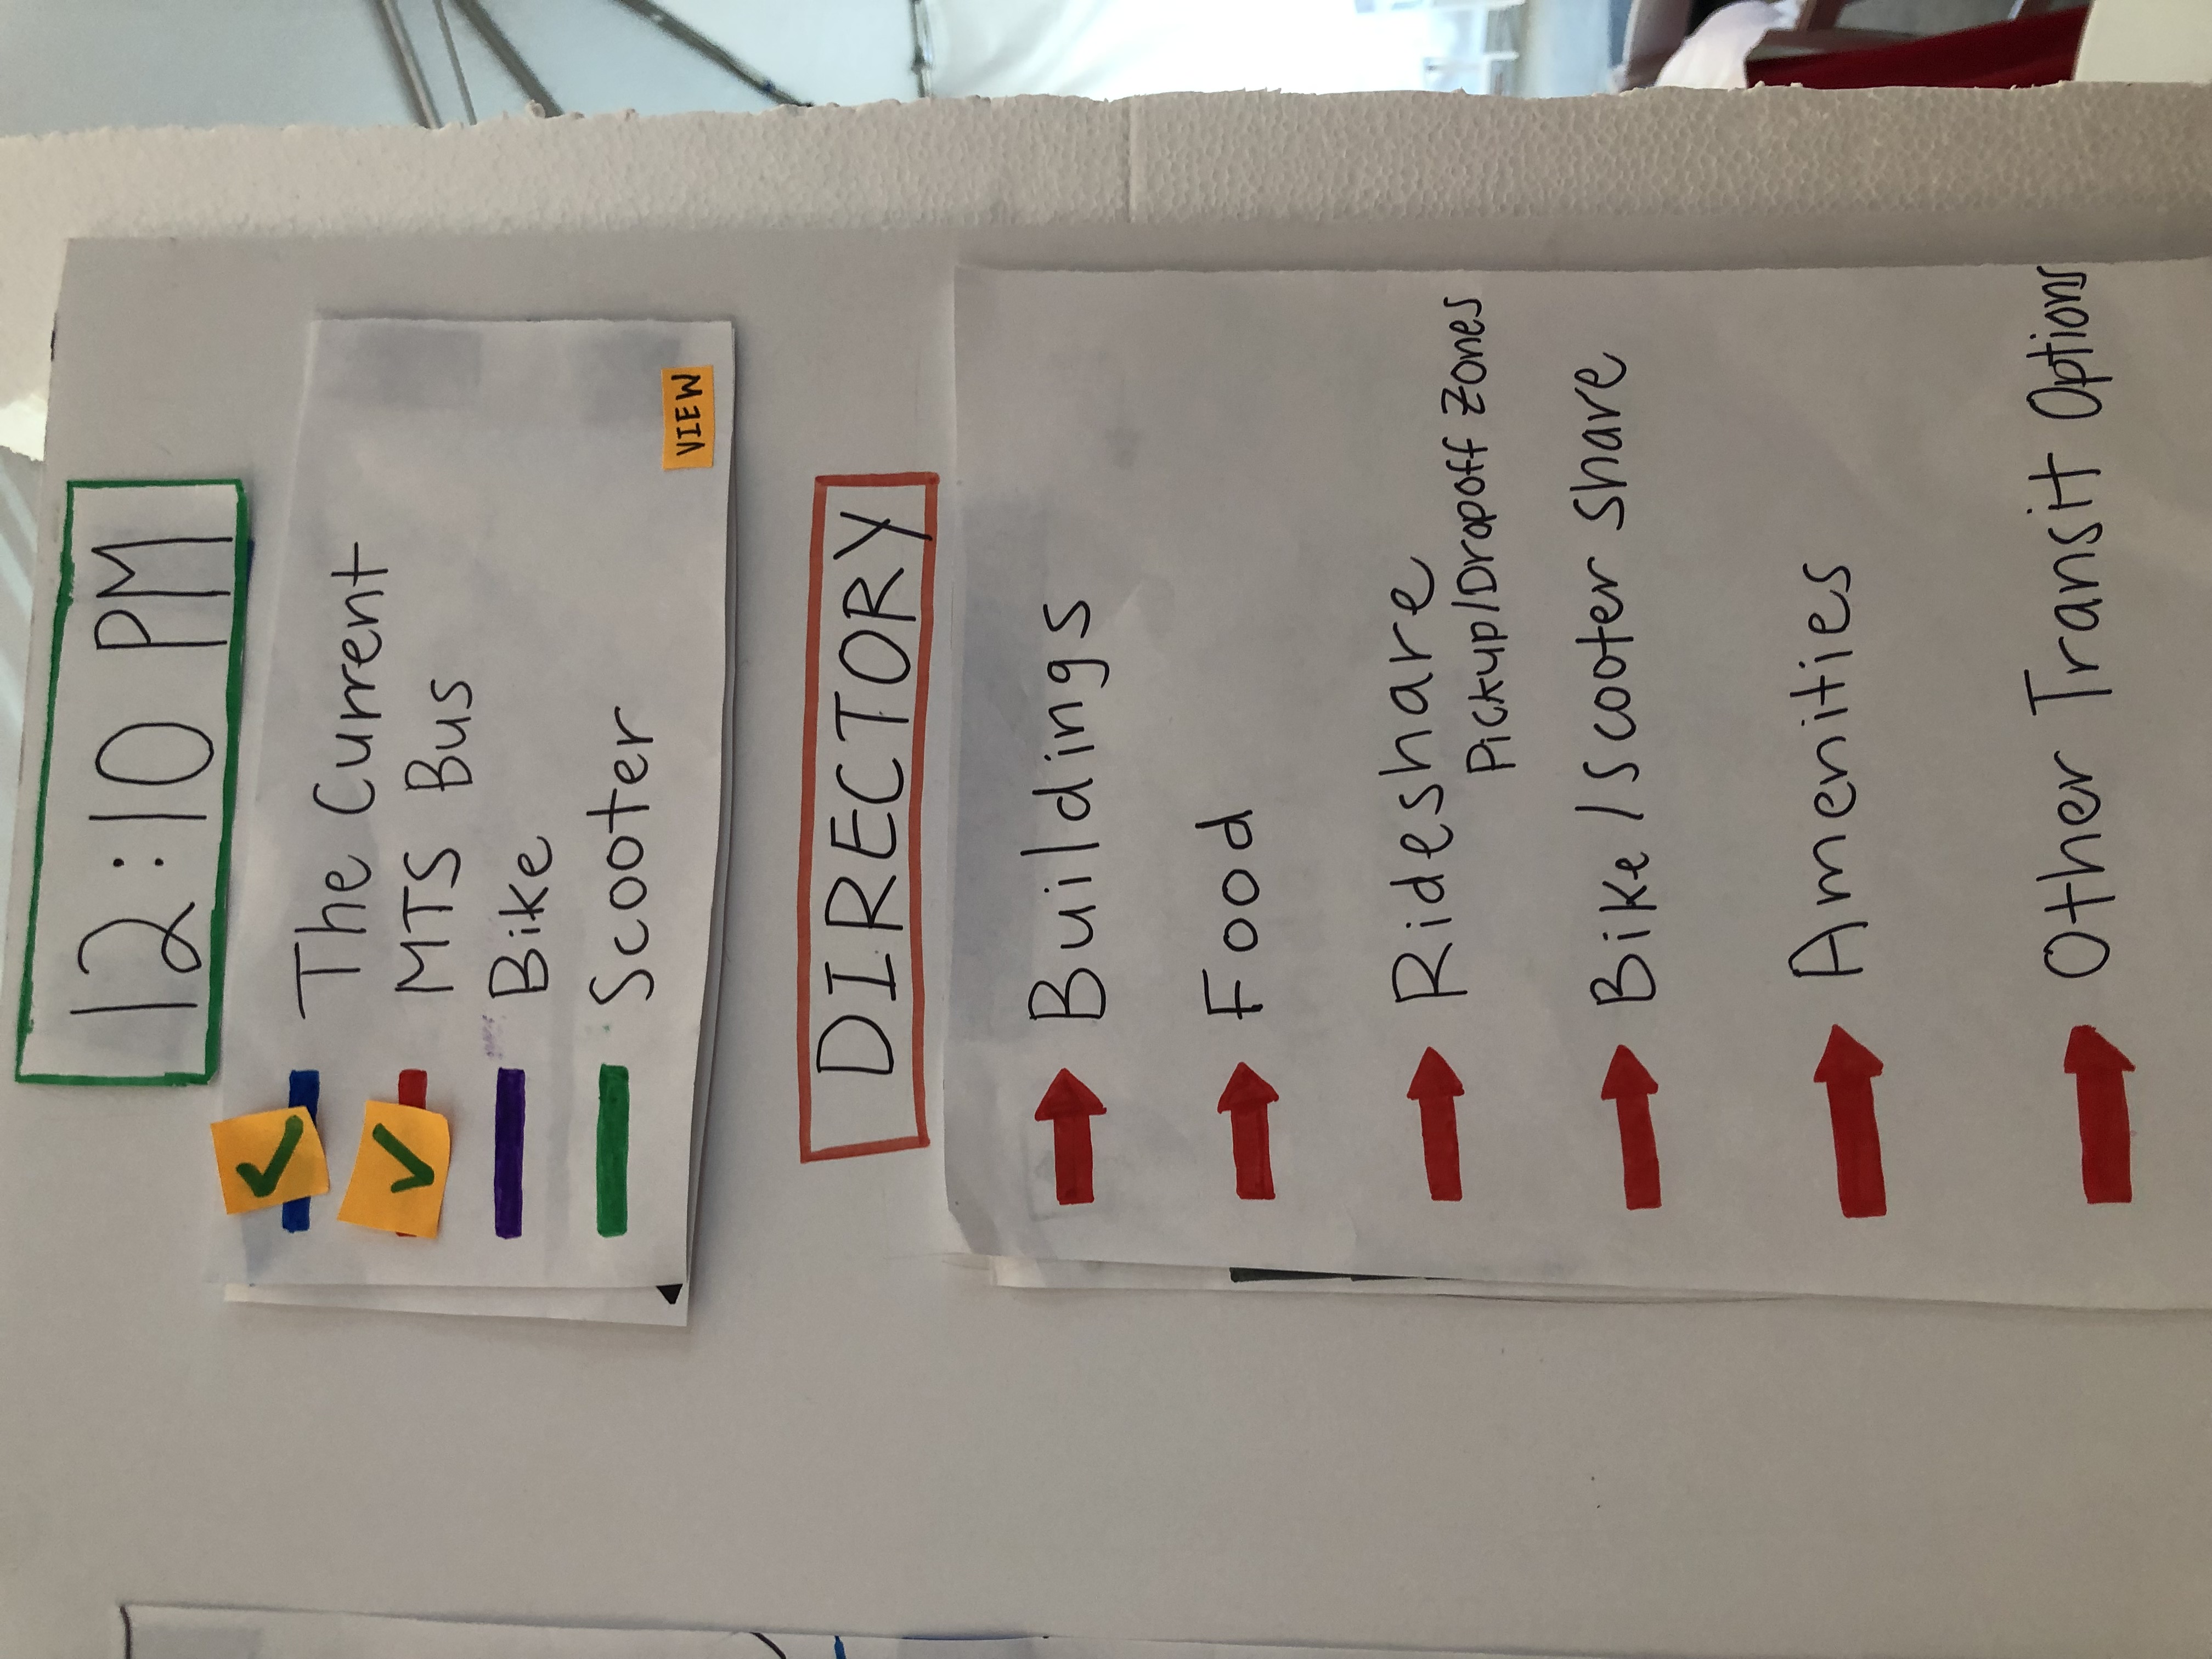 12:10 PM
The Current
MTS Bus
Bike
Scooter
VIEW
DIRECTORY
Buildings
Food
Rideshare
Pickup/Dropoff Zones
Bike / Scooter Share
Amenities
Other Transit Options